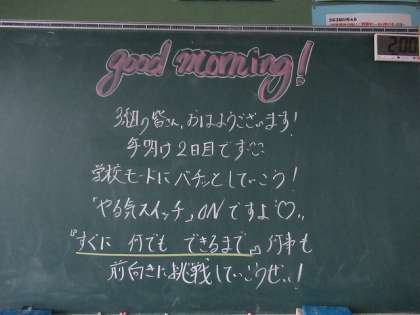 good morning!
3組の皆さん、おはようございます!
年明け2日目です
学校モードにバチッとしていこう!
「やる気スイッチ」ONですよ♡
『すぐに 何でも できるまで』何事も
前向きに挑戦していこうぜ!